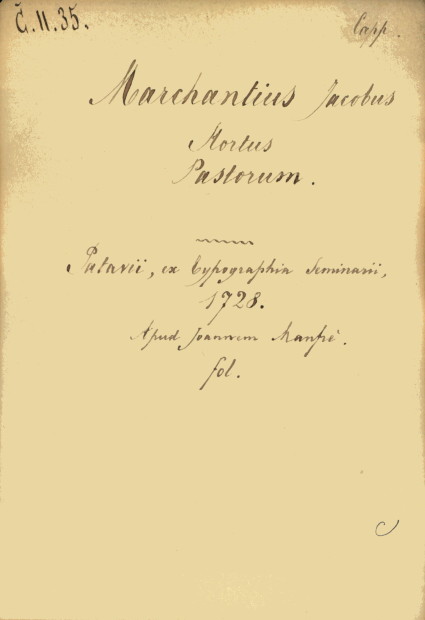 Č.II.35.
Capp.
Marchantius Jacobus
Hortus
Pastorum.
Patavii, ex Typographia Seminarii,
1728.
Apud Joannem Manfrè.
fol.